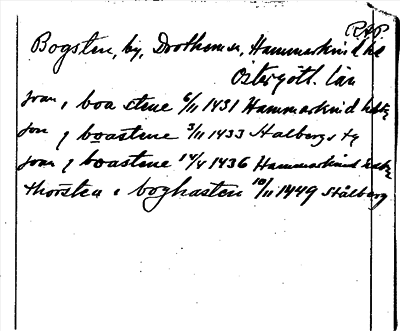 RAP.
Bogsten, by, Drothems sn, Hammarkinds hd
Östergötl. län
joan j boa stene 6/11 1431 Hammarkind hdtg
jon j boastene 3/11 1433 Stalbergs tg
joan j boastene 14/5 1436 Hammarkind hdtg
thorsten i boghasten 10/11 1449 Stålberg